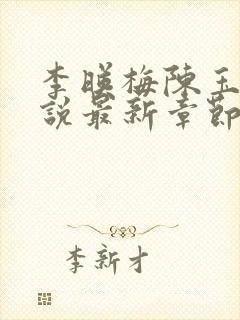 李暎梅陳玉
說最新章節
李新才